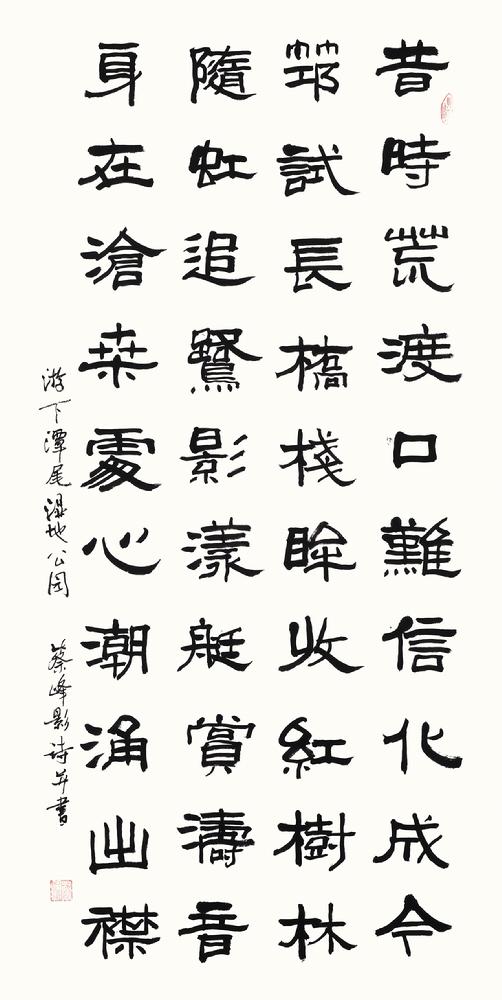 昔時荒渡口難信化成今
筇試長橋棧眸收紅樹林
隨虹追鷺影漾艇賞濤音
身在滄桑處心潮涌出襟
游下潭尾湿地公园 蔡峰影詩并書